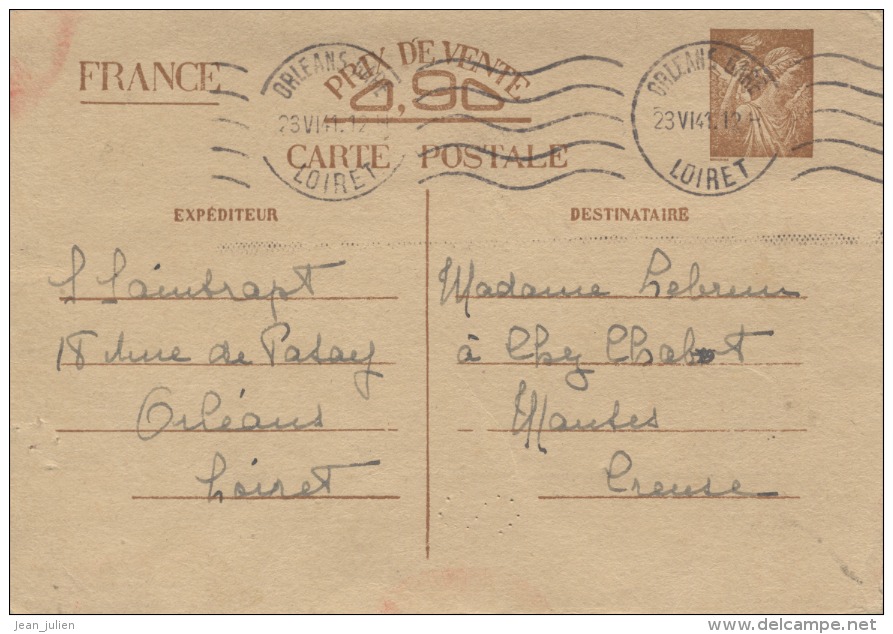 FRANCE
PRIX DE VENTE
0,90
CARTE POSTALE
ORLEANS GARE
23 VI 41. 12 H
LOIRET
ORLEANS GARE
23 VI 41. 12 H
LOIRET
EXPÉDITEUR
S Saintrapt
18 Rue de Patay
Orléans
Loiret
DESTINATAIRE
Madame Lebrun
à Chez Chabot
Mautes
Creuse
jean_julien
www.delcampe.net